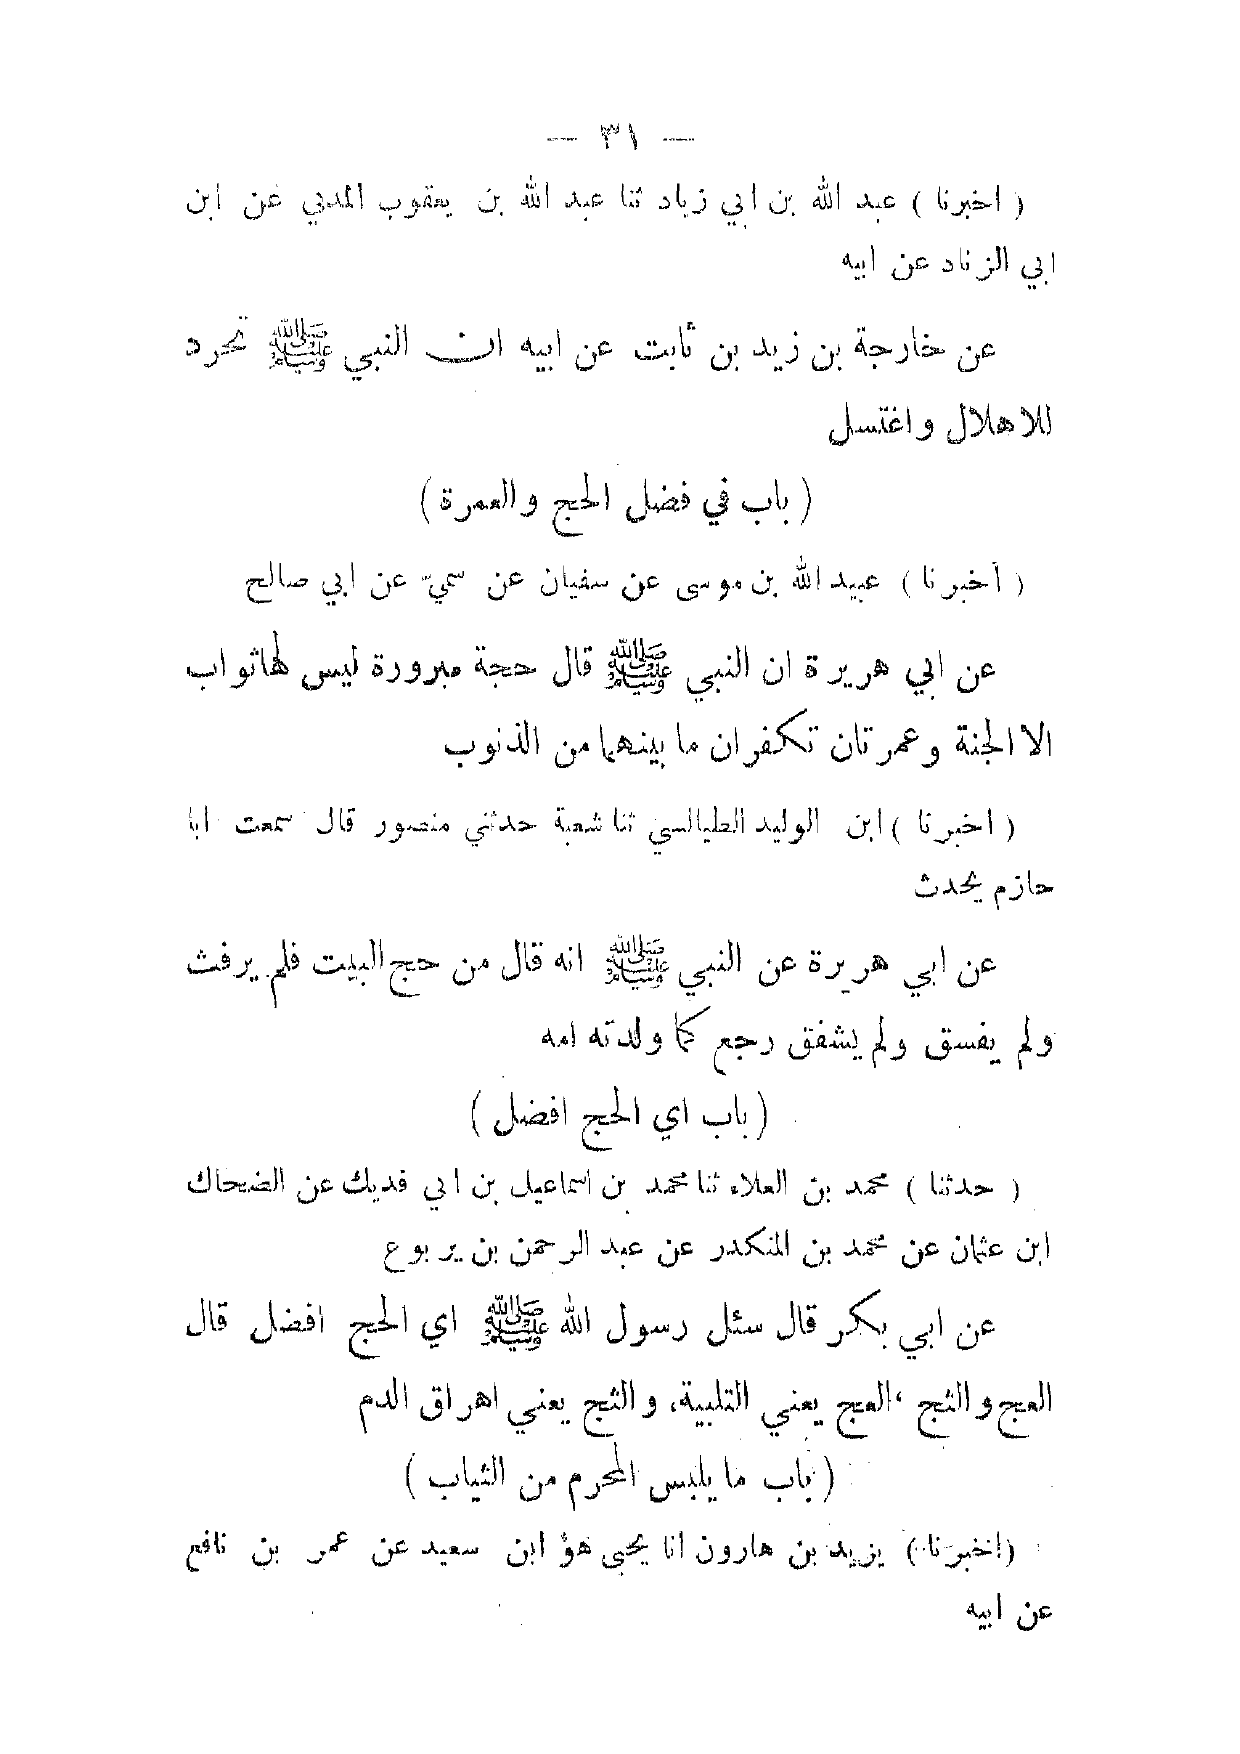 — ٣١ —
( اخبرنا ) عبد الله بن ابي زياد ثنا عبد الله بن يعقوب المدني عن ابن
ابي الزناد عن ابيه
عن خارجة بن زيد بن ثابت عن ابيه ان النبي ﷺ تحرد
للاهلال واغتسل
( باب في فضل الحج والعمرة )
( أخبرنا ) عبيد الله بن موسى عن سفيان عن سميّ عن ابي صالح
عن ابي هريرة ان النبي ﷺ قال حجة مبرورة ليس لها ثواب
الا الجنة وعمرتان تكفران ما بينهما من الذنوب
( اخبرنا ) ابن الوليد الطيالسي ثنا شعبة حدثني منصور قال سمعت ابا
حازم يحدث
عن ابي هريرة عن النبي ﷺ انه قال من حج البيت فلم يرفث
ولم يفسق ولم يشفق رجع كما ولدته امه
( باب اي الحج افضل )
( حدثنا ) محمد بن العلاء ثنا محمد بن اسماعيل بن ابي فديك عن الضحاك
ابن عثمان عن محمد بن المنكدر عن عبد الرحمن بن يربوع
عن ابي بكر قال سئل رسول الله ﷺ اي الحج افضل قال
العج والثج ‘العج يعني التلبية، والثج يعني اهراق الدم
( باب ما يلبس المحرم من الثياب )
(اخبرنا) يزيد بن هارون انا يحيى هؤ ابن سعيد عن عمر بن نافع
عن ابيه